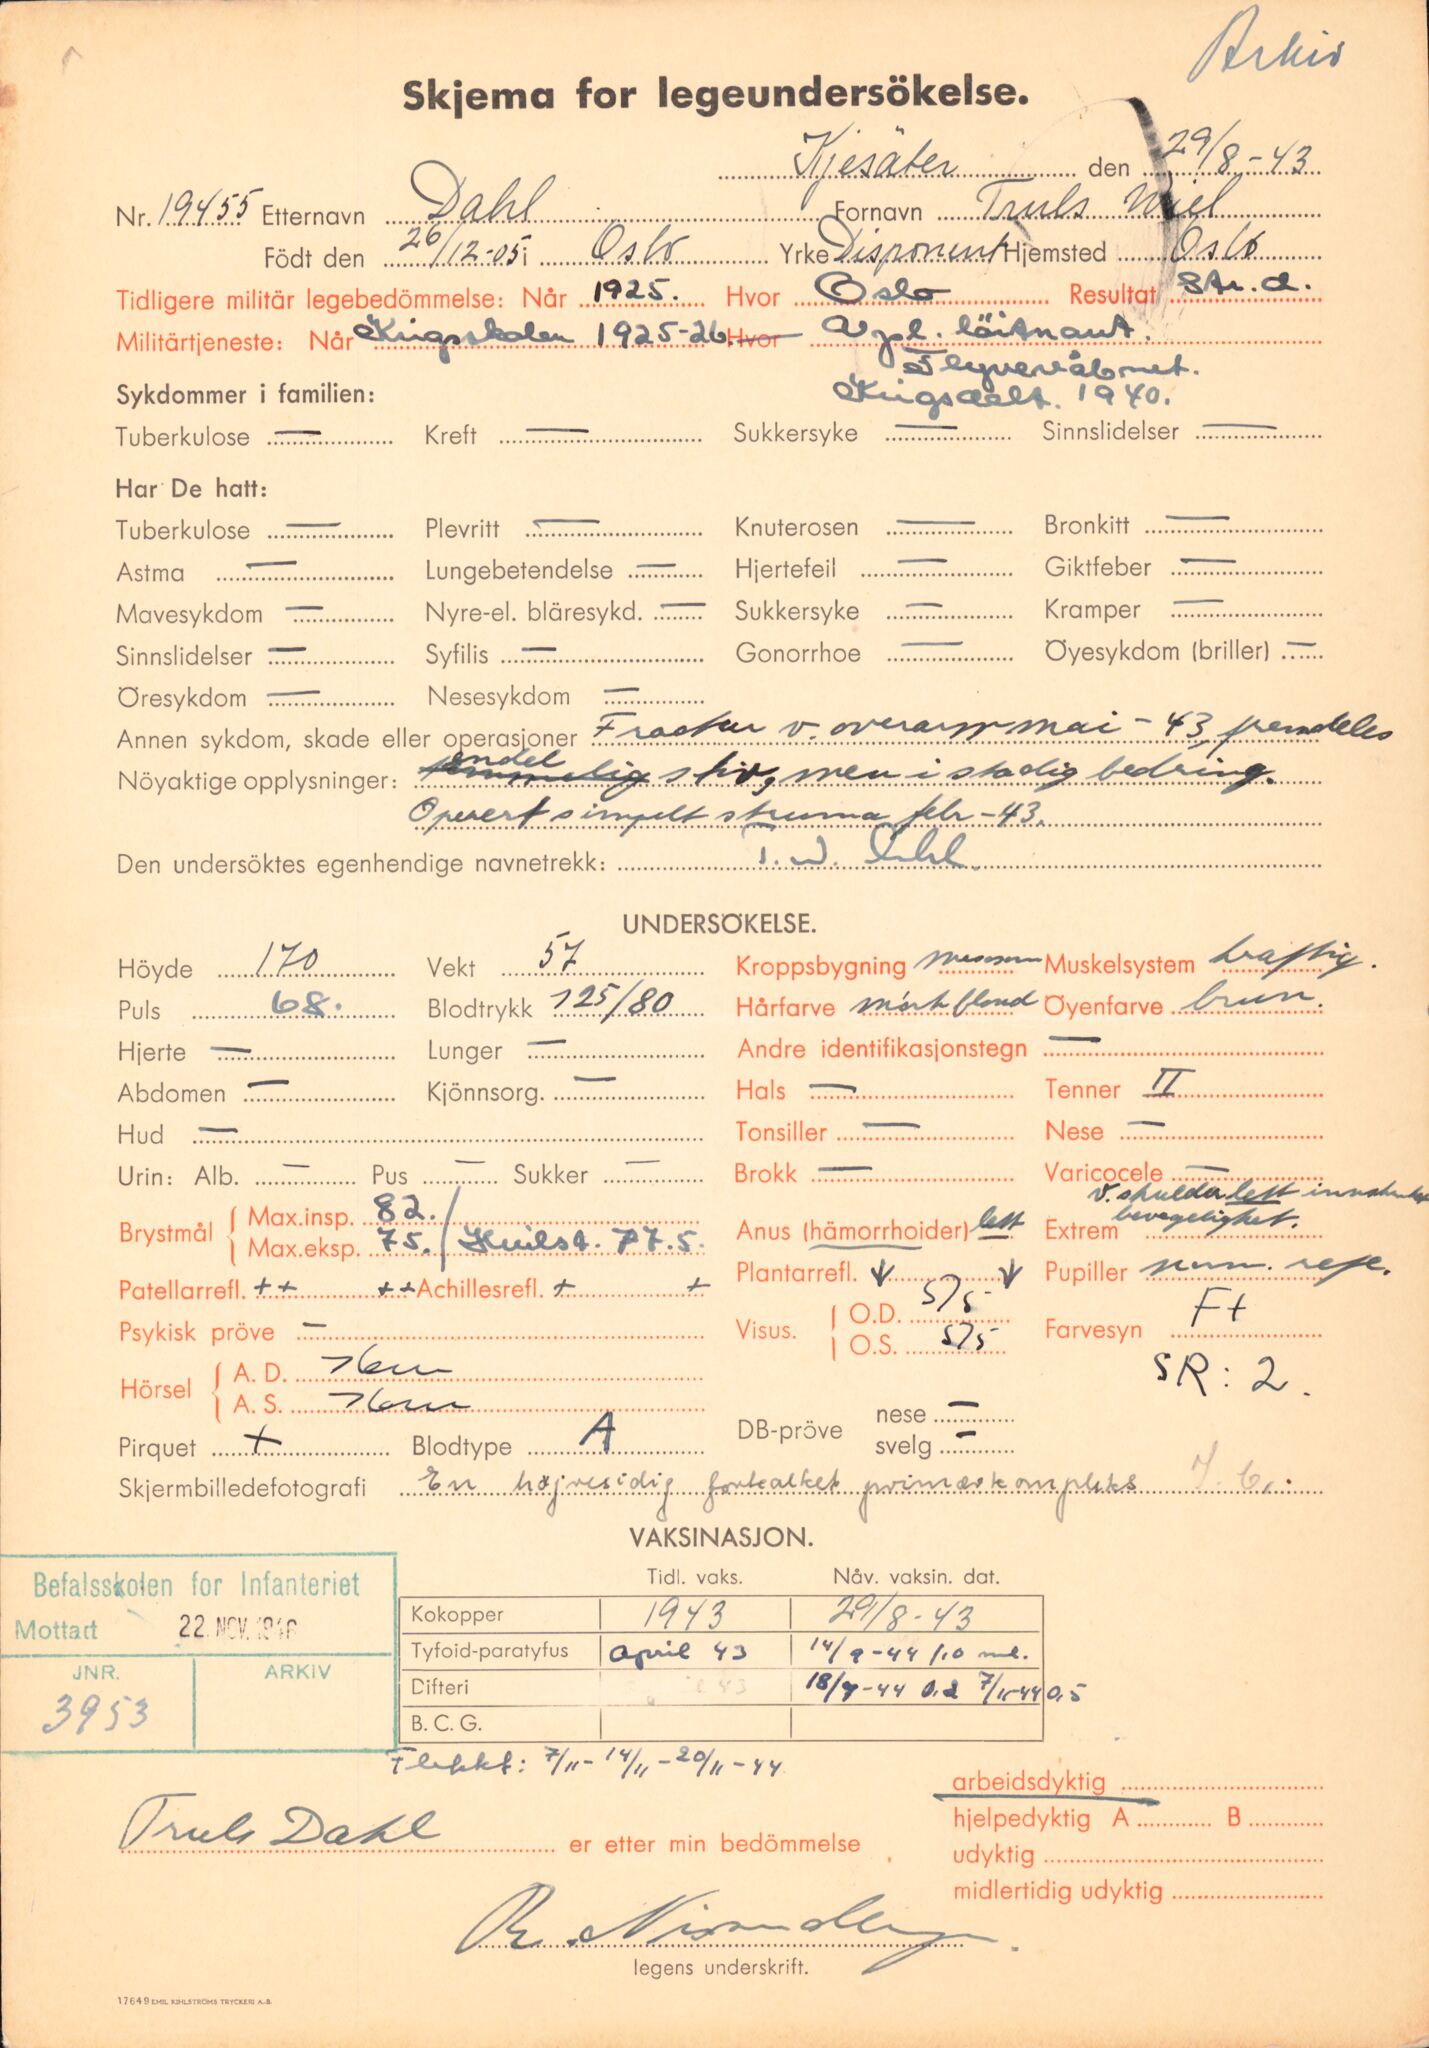 Arkiv
Skjema for legeundersökelse.
Kjesäter den 29/8-43
Nr. 19455 Etternavn Dahl Fornavn Truls Wiel
Födt den 26/12-05 i Oslo Yrke Disponent Hjemsted Oslo
Tidligere militär legebedömmelse: Når 1925. Hvor Oslo Resultat St. d.
Militärtjeneste: Når Krigsskolen 1925-26. Hvor Vpl. löitnant.
Flyvevåbnet.
Sykdommer i familien: Krigsdelt. 1940.
Tuberkulose — Kreft — Sukkersyke — Sinnslidelser —
Har De hatt:
Tuberkulose — Plevritt — Knuterosen — Bronkitt —
Astma — Lungebetendelse — Hjertefeil — Giktfeber —
Mavesykdom — Nyre-el. bläresykd. — Sukkersyke — Kramper —
Sinnslidelser — Syfilis — Gonorrhoe — Öyesykdom (briller) —
Öresykdom — Nesesykdom —
Annen sykdom, skade eller operasjoner Fractur v. overarm mai -43, fremdeles
Nöyaktige opplysninger: endel stiv, men i stadig bedring.
Operert simpelt struma febr -43.
Den undersöktes egenhendige navnetrekk: T. W. Dahl
UNDERSÖKELSE.
Höyde 170 Vekt 57 Kroppsbygning Muskelsystem kraftig.
Puls 68. Blodtrykk 125/80 Hårfarve mörk blond Öyenfarve brun.
Hjerte — Lunger — Andre identifikasjonstegn —
Abdomen — Kjönnsorg. — Hals — Tenner II
Hud — Tonsiller — Nese —
Urin: Alb. — Pus — Sukker — Brokk — Varicocele —
v. skulder lett innskrenket
bevegelighet.
Brystmål { Max.insp. 82. Anus (hämorrhoider) lett Extrem
Max.eksp. 75. / Hvilst. 77.5.
Patellarrefl. ++ ++ Achillesrefl. + + Plantarrefl. ↓ ↓ Pupiller norm. refl.
Psykisk pröve — Visus. { O.D. 5/5 Farvesyn F+
O.S. 5/5
Hörsel { A. D. Norm SR: 2.
A. S. Norm
Pirquet + Blodtype A DB-pröve nese —
svelg —
Skjermbilledefotografi En höjresidig forkalket primærkompleks
VAKSINASJON.
Tidl. vaks. Nåv. vaksin. dat.
Kokopper 1943 29/8-43
Tyfoid-paratyfus April 43 14/9-44 1,0 ml.
Difteri 18/9-44 0,2 7/11-44 0,5
B. C. G.
Flekkt: 7/11-14/11-20/11-44
Befalsskolen for Infanteriet
Mottatt 22. NOV. 1946
JNR. ARKIV
3953
Truls Dahl er etter min bedömmelse
arbeidsdyktig
hjelpedyktig A B
udyktig
midlertidig udyktig
legens underskrift.
17649 EMIL KIHLSTRÖMS TRYCKERI A.-B.